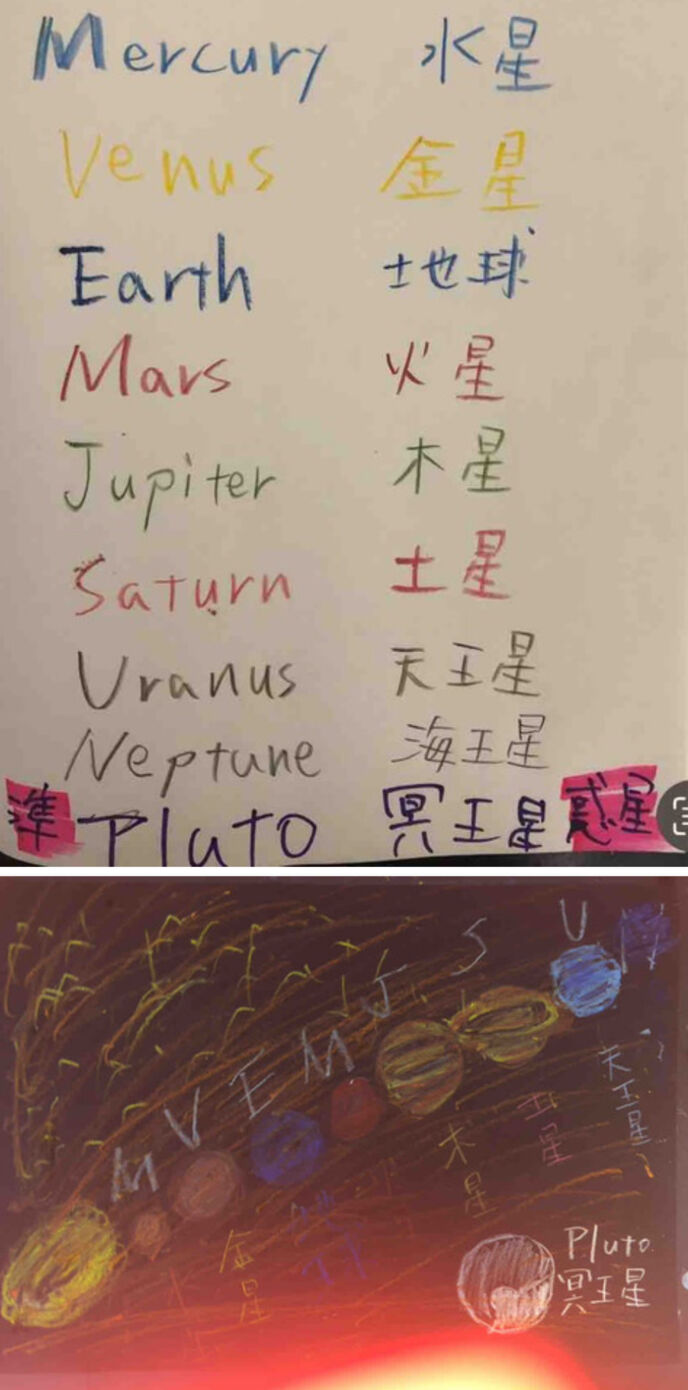 Mercury 水星
Venus 金星
Earth 地球
Mars 火星
Jupiter 木星
Saturn 土星
Uranus 天王星
Neptune 海王星
準 Pluto 冥王星 惑星
M V E M J S U N
金星
地
木星
土星
天王星
Pluto
冥王星